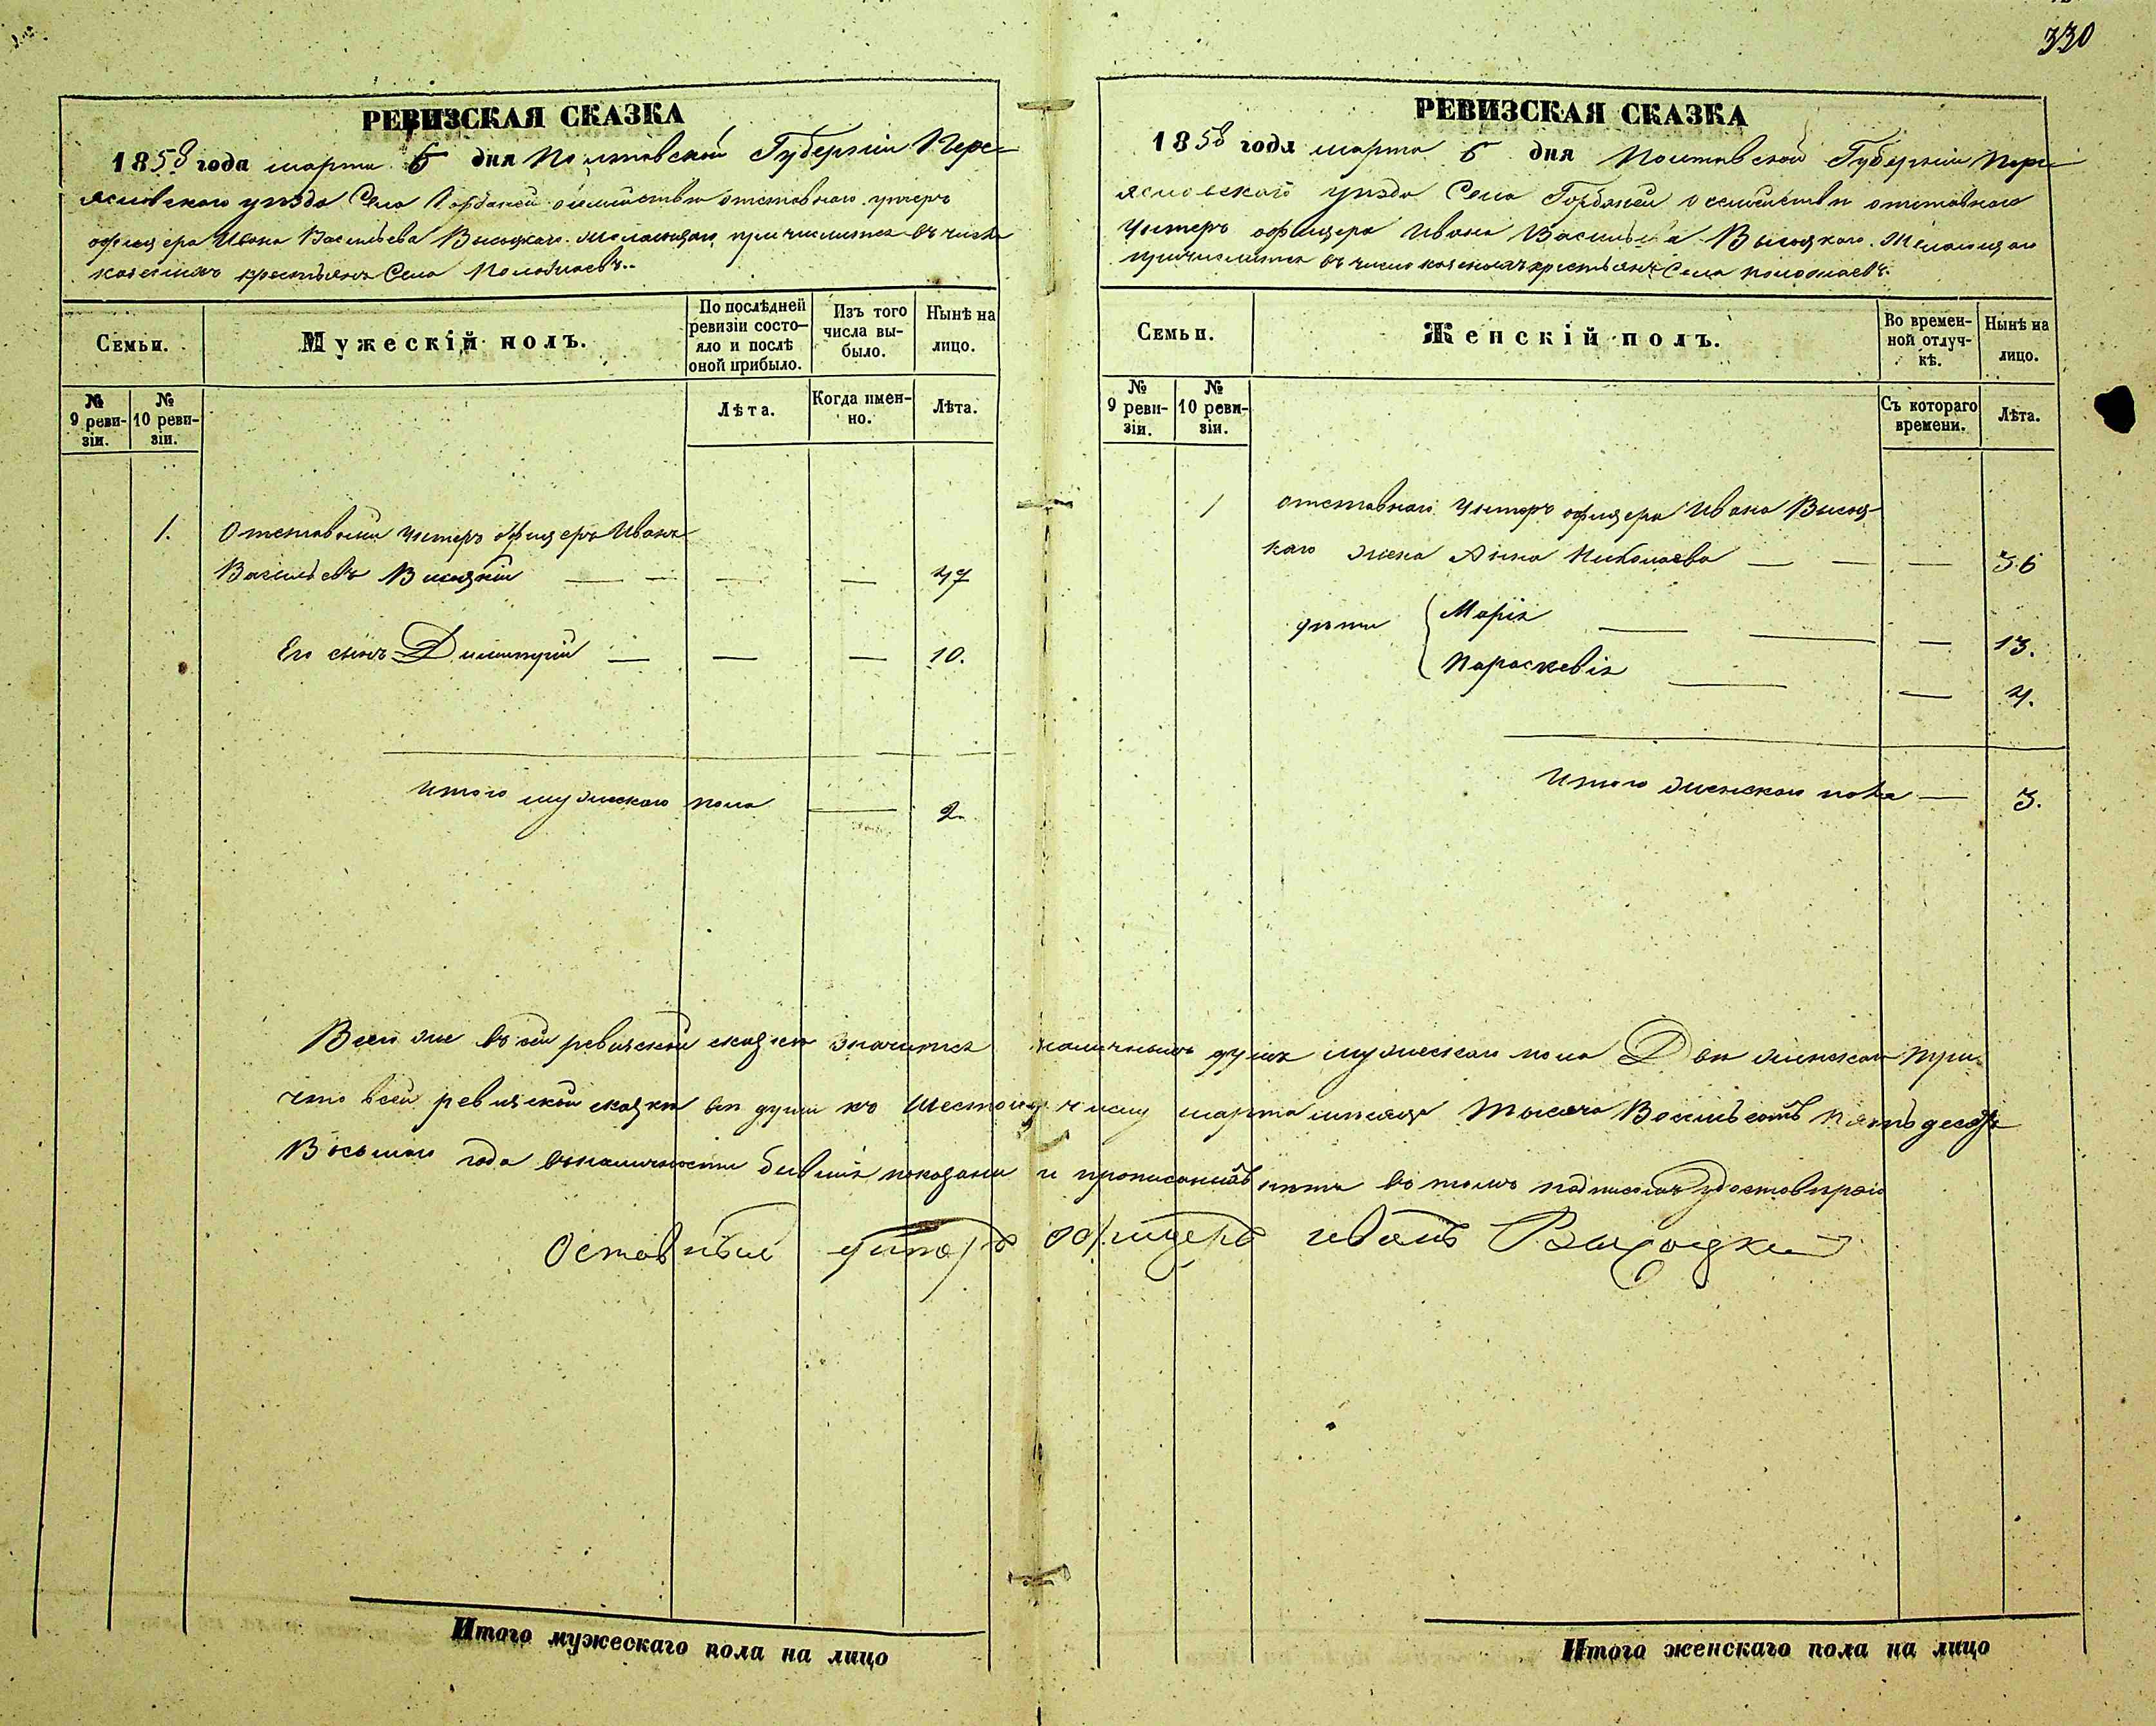 330
РЕВИЗСКАЯ СКАЗКА
1858 года марта 6 дня Полтавской Губерніи Пере-
яславскаго уѣзда Села Горбаней о семействѣ отставнаго унтеръ
офицера Ивана Васильева Высоцкаго. Желающаго причислится въ число
казенныхъ крестьянъ Села
Семьи.
Мужескій полъ.
По послѣдней ревизіи состо-
яло и послѣ оной прибыло.
Изъ того числа вы-
было.
Нынѣ на лицо.
№ 9 реви-
зіи.
№ 10 реви-
зіи.
Лѣта.
Когда имен-
но.
Лѣта.
1. Отставный Унтеръ офицеръ Иванъ
Васильевъ Высоцкій — — — — 47
Его сынъ Димитрій — — — 10.
Итого мужескаго пола — 2.
РЕВИЗСКАЯ СКАЗКА
1858 года марта 6 дня Полтавской Губерніи Пере-
яславскаго уѣзда Села Горбаней о семействѣ отставнаго
Унтеръ офицера Ивана Васильева Высоцкаго. Желающаго
причислится въ число казенныхъ крестьянъ Села
Семьи.
Женскій полъ.
Во времен-
ной отлуч-
кѣ.
Нынѣ на лицо.
№ 9 реви-
зіи.
№ 10 реви-
зіи.
Съ котораго времени.
Лѣта.
1 Отставнаго Унтеръ офицера Ивана Высоц-
каго жена Анна Николаева — — — 36
дѣти Марія — — — 13.
Параскевія — — 4.
Итого женскаго пола — 3.
Всего же въ сей ревизской сказкѣ значится наличныхъ душъ мужескаго пола Двѣ женскаго три.
что въ сей ревизской сказкѣ всѣ души къ Шестому числу марта мѣсяца Тысяча Восемьсотъ пятьдесятъ
Восьмаго года въ наличности бывшія показаны и прописныхъ нѣтъ въ томъ подписомъ удостовѣряю
Оставный унтеръ офицеръ иванъ Высоцкий
Итого мужескаго пола на лицо
Итого женскаго пола на лицо